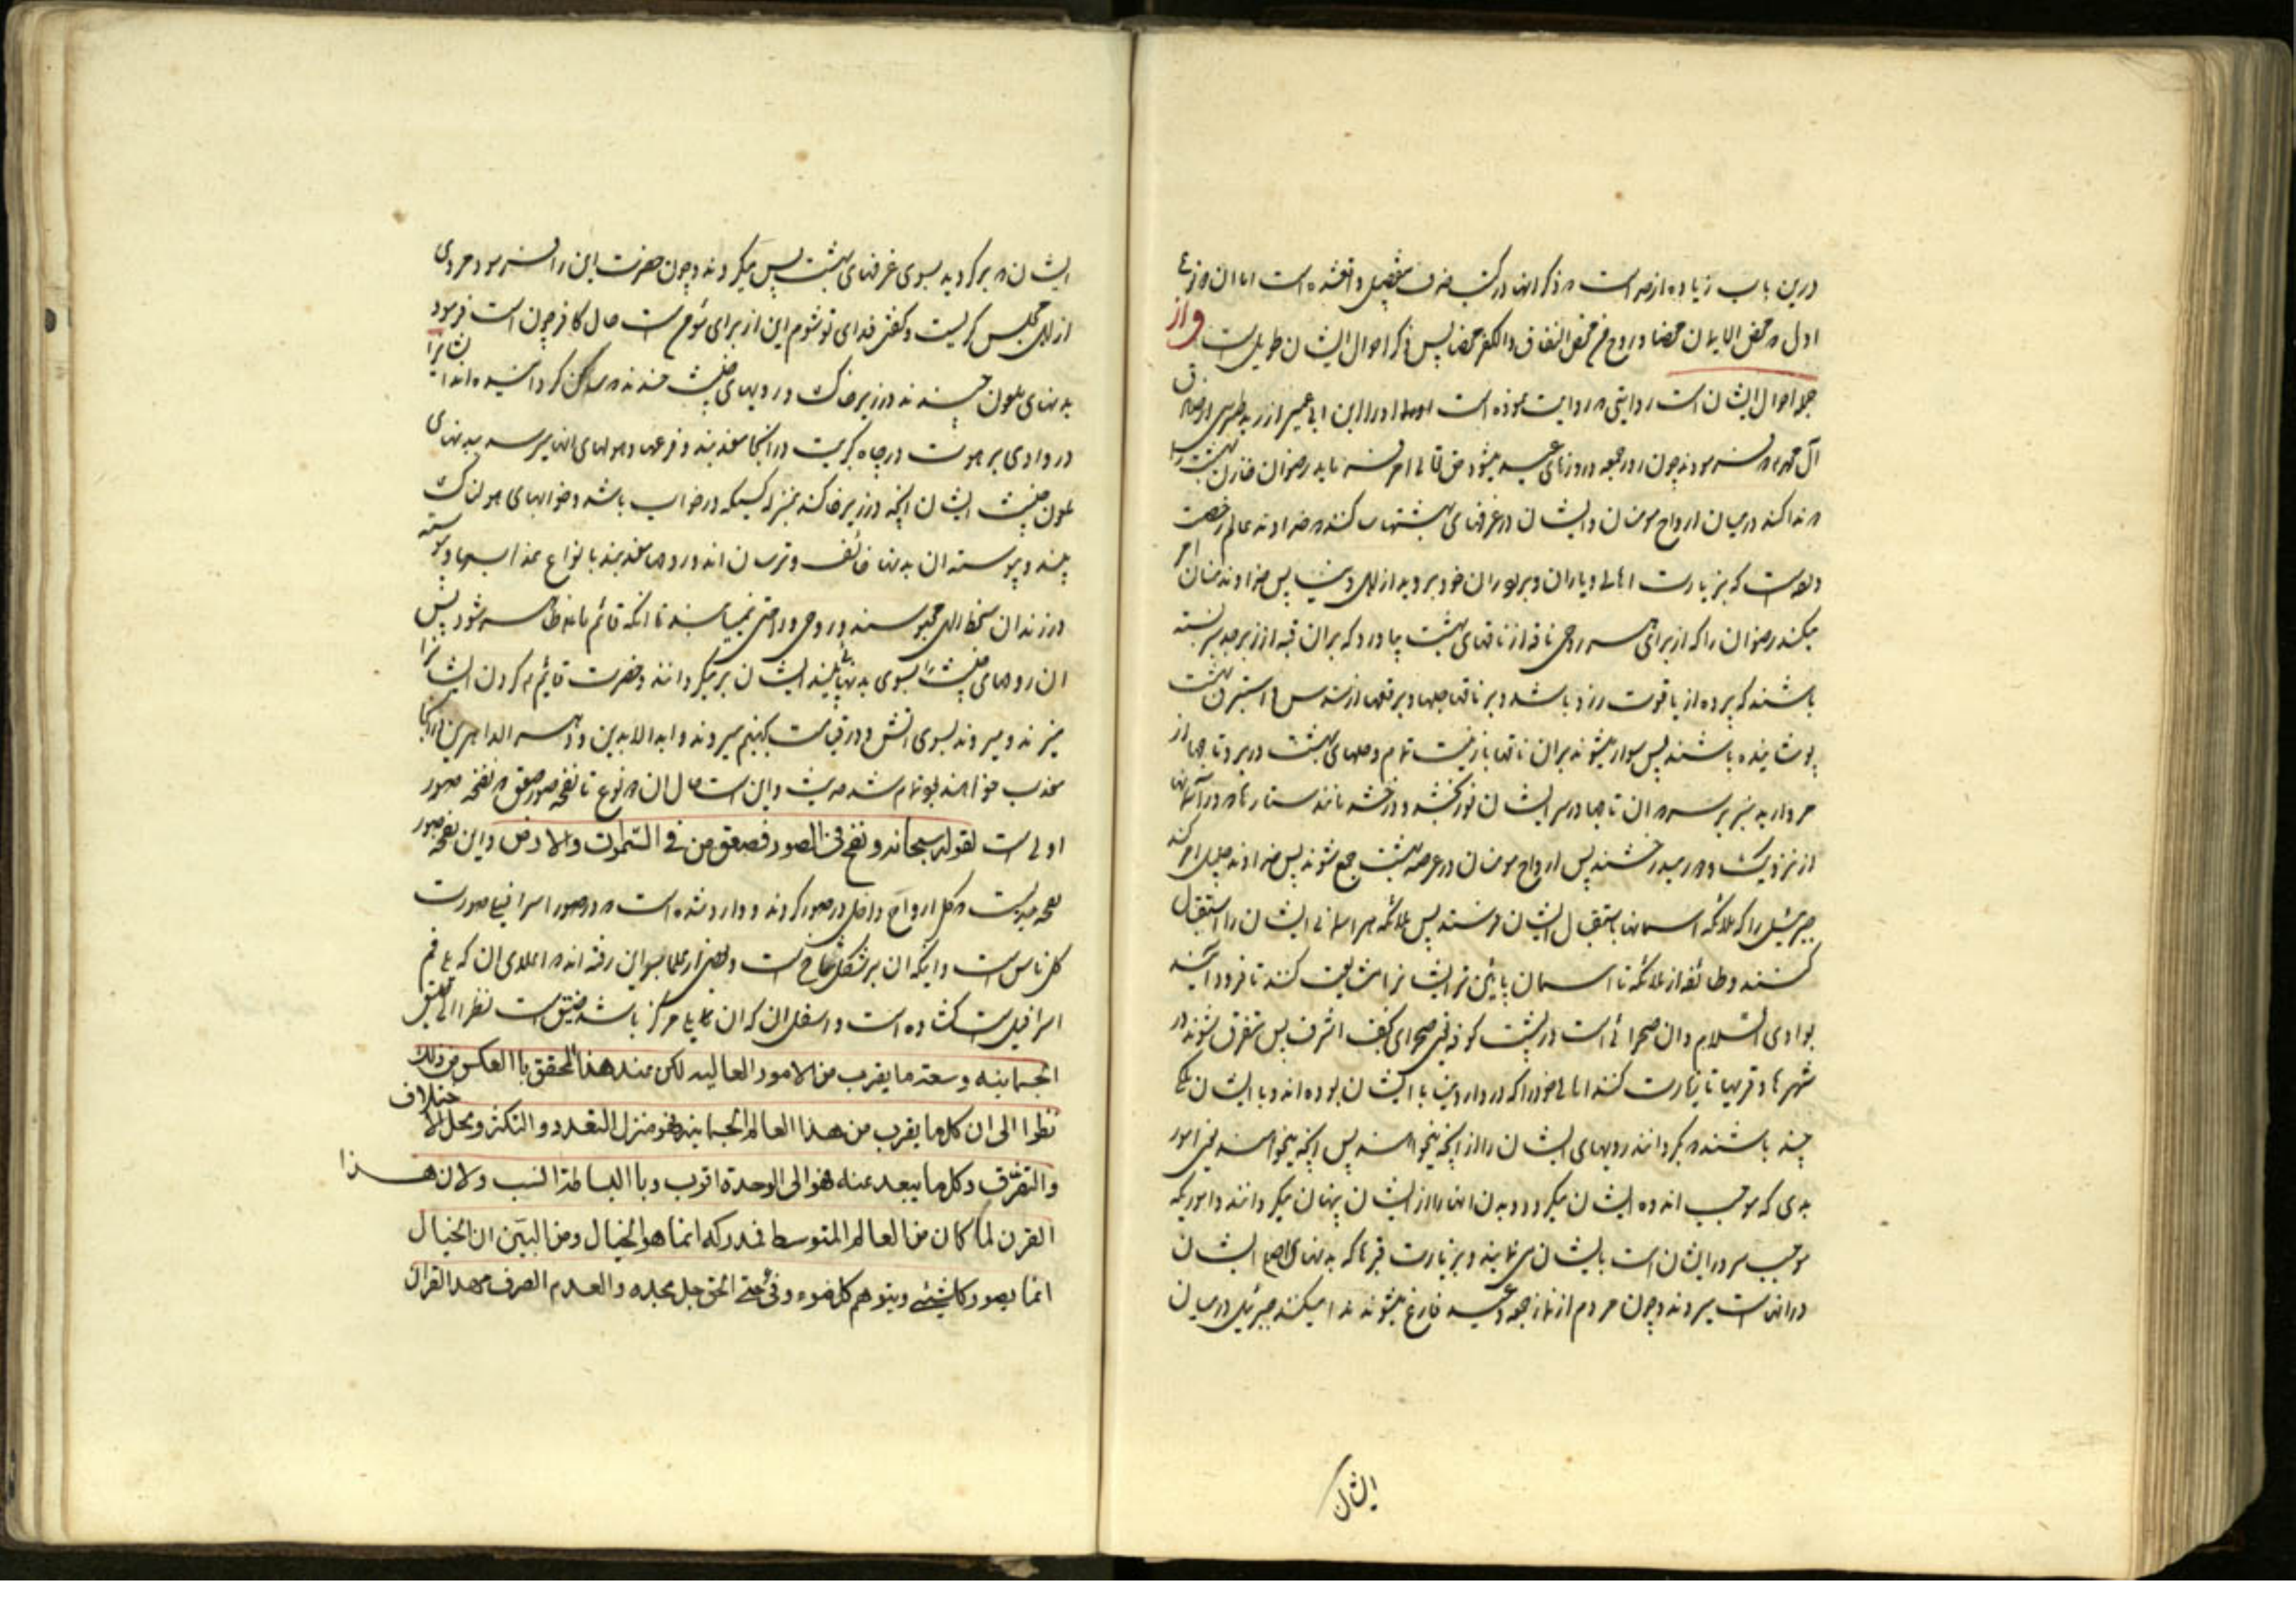 درین باب زیاده از حد است و ذکر آنها در کتب بتفصیل واقع شده است اما ان
اول محض الایمان محضا و روح محض النفاق و الکفر محضا پس ذکر احوال ایشان طویل است و از
جمله احوال ایشان است روایتی روایت نموده است ابن ابی عمیر از
آل محمد فرمودند چون روز جمعه و روزهای عید میشود حق تعالی امر فرماید رضوان خازن بهشت را
ندا کند در میان ارواح مومنان و ایشان در غرفهای بهشتها خداوند عالم رخصت
داده است که بزیارت اهالی و یاران و برادران خود بروید از اهل دنیا پس خداوند منان امر
میکند رضوان را که از برای هر روحی ناقه از ناقهای بهشت بیاورد که بران قبه از زبرجد سبز بسته
باشند که پرده از یاقوت زرد باشد و بر ناقها جلها و برقعها از سندس و استبرق بهشت
پوشانیده باشند پس سوار میشوند بران ناقها با زینت تمام و حلهای بهشت در بر و تاجها از
مروارید بر سر و ان تاجها در سر ایشان نور بخشد و درخشد مانند ستارها در آسمان
از نزدیک و دور میدرخشند پس ارواح مومنان در عرصه بهشت جمع شوند پس خداوند جلیل امر کند
جبرئیل را که ملائکه آسمانها باستقبال ایشان فرستد پس ملائکه هر آسمانی ایشان را استقبال
کنند و طائفه از ملائکه تا آسمان پائین تر ایشانرا مشایعت کنند تا فرود آیند
بوادی السلام و ان صحرائی است در پشت کوفه یعنی صحرای نجف اشرف پس متفرق شوند در
شهرها و قریها تا زیارت کنند اهالی خود را که در دار دنیا با ایشان بوده اند و با ایشان ملکی
چند باشند بگردانند رویهای ایشان را از آنچه نیخواهند پس آنچه نیخواهند یعنی امور
بدی که موجب اندوه ایشان میگردد و بدن آنها را از ایشان پنهان میگردانند و اموریکه
موجب سرور ایشان است بایشان می نمایند و بزیارت قبرها که بدنهای ایشان
در آنهاست میروند و چون مردم از نماز جمعه و عید فارغ میشوند ندا میکند جبرئیل در میان
ایشان
ایشان برگردید بسوی غرفهای بهشت پس میگردند و چون حضرت این را فرمود مردی
از اهل مجلس گریست و گفت فدای تو شوم این از برای مؤمن است حال کافر چون است فرمود
بدنهای ملعون چند در زیر خاک و روحهای خبیث چند ساکن گردانیده اند ایشانرا
در وادی برهوت در چاه کبریت در آنجا معذبند و فزعها و هولهای آنها میرسد ببدنهای
ملعون خبیث ایشان آنچه در زیر خاکند بمنزله کسیکه در خواب باشد و خوابهای هولناک
بیند و پیوسته ان بدنها خائف و ترسان اند و روحها معذبند بانواع عذابها و پیوسته
در زندان سخط الهی محبوسند و روحی و راحتی نمییابند تا آنکه قائم ما ظاهر شود پس
ان روحهای خبیث را بسوی بدنهای پلید ایشان برمیگردانند و حضرت قائم گردن ایشانرا
میزند و میروند بسوی آتش و در قیامت بجهنم میروند و ابد الابدین و دهر الداهرین در آنجا
معذب خواهند بود تمام شد حدیث و این است حال ان نوع تا نفخه صور صعق نفخه صور
اولی است لقوله سبحانه و نفخ فی الصور فصعق من فی السموات والارض و این نفخه صور
نفخه جذب است کل ارواح داخل در صور گردند و وارد شده است در صور اسرافیل صورت
کل ناس است و اینکه ان بر شکل شاخ است و بعضی از علما بسوی این رفته اند اعلای ان که علی فم
اسرافیل است گشاده است و اسفل ان که ان مرکز باشد ضیق است نظرا الی ضیق
الجسمانیه و سعة ما یقرب من الامور العالیه لکن عند هذا المحقق باالعکس من ذلک
نظرا الی ان کل ما یقرب من هذا العالم الجسمانیه فهو منزل التعدد و التکثر و محل الاختلاف
والتفرق و کل ما یبعد عنه فهو الی الوحدة اقرب و باالبساطة انسب ولان هذا
القرن لما کان من العالم المتوسط فمدرکه انما هو الخیال و من البین ان الخیال
انما یصور کل شیئ و یتوهم کل ضوء و فیئ حتی الحق جل مجده و العدم الصرف فهذا القران